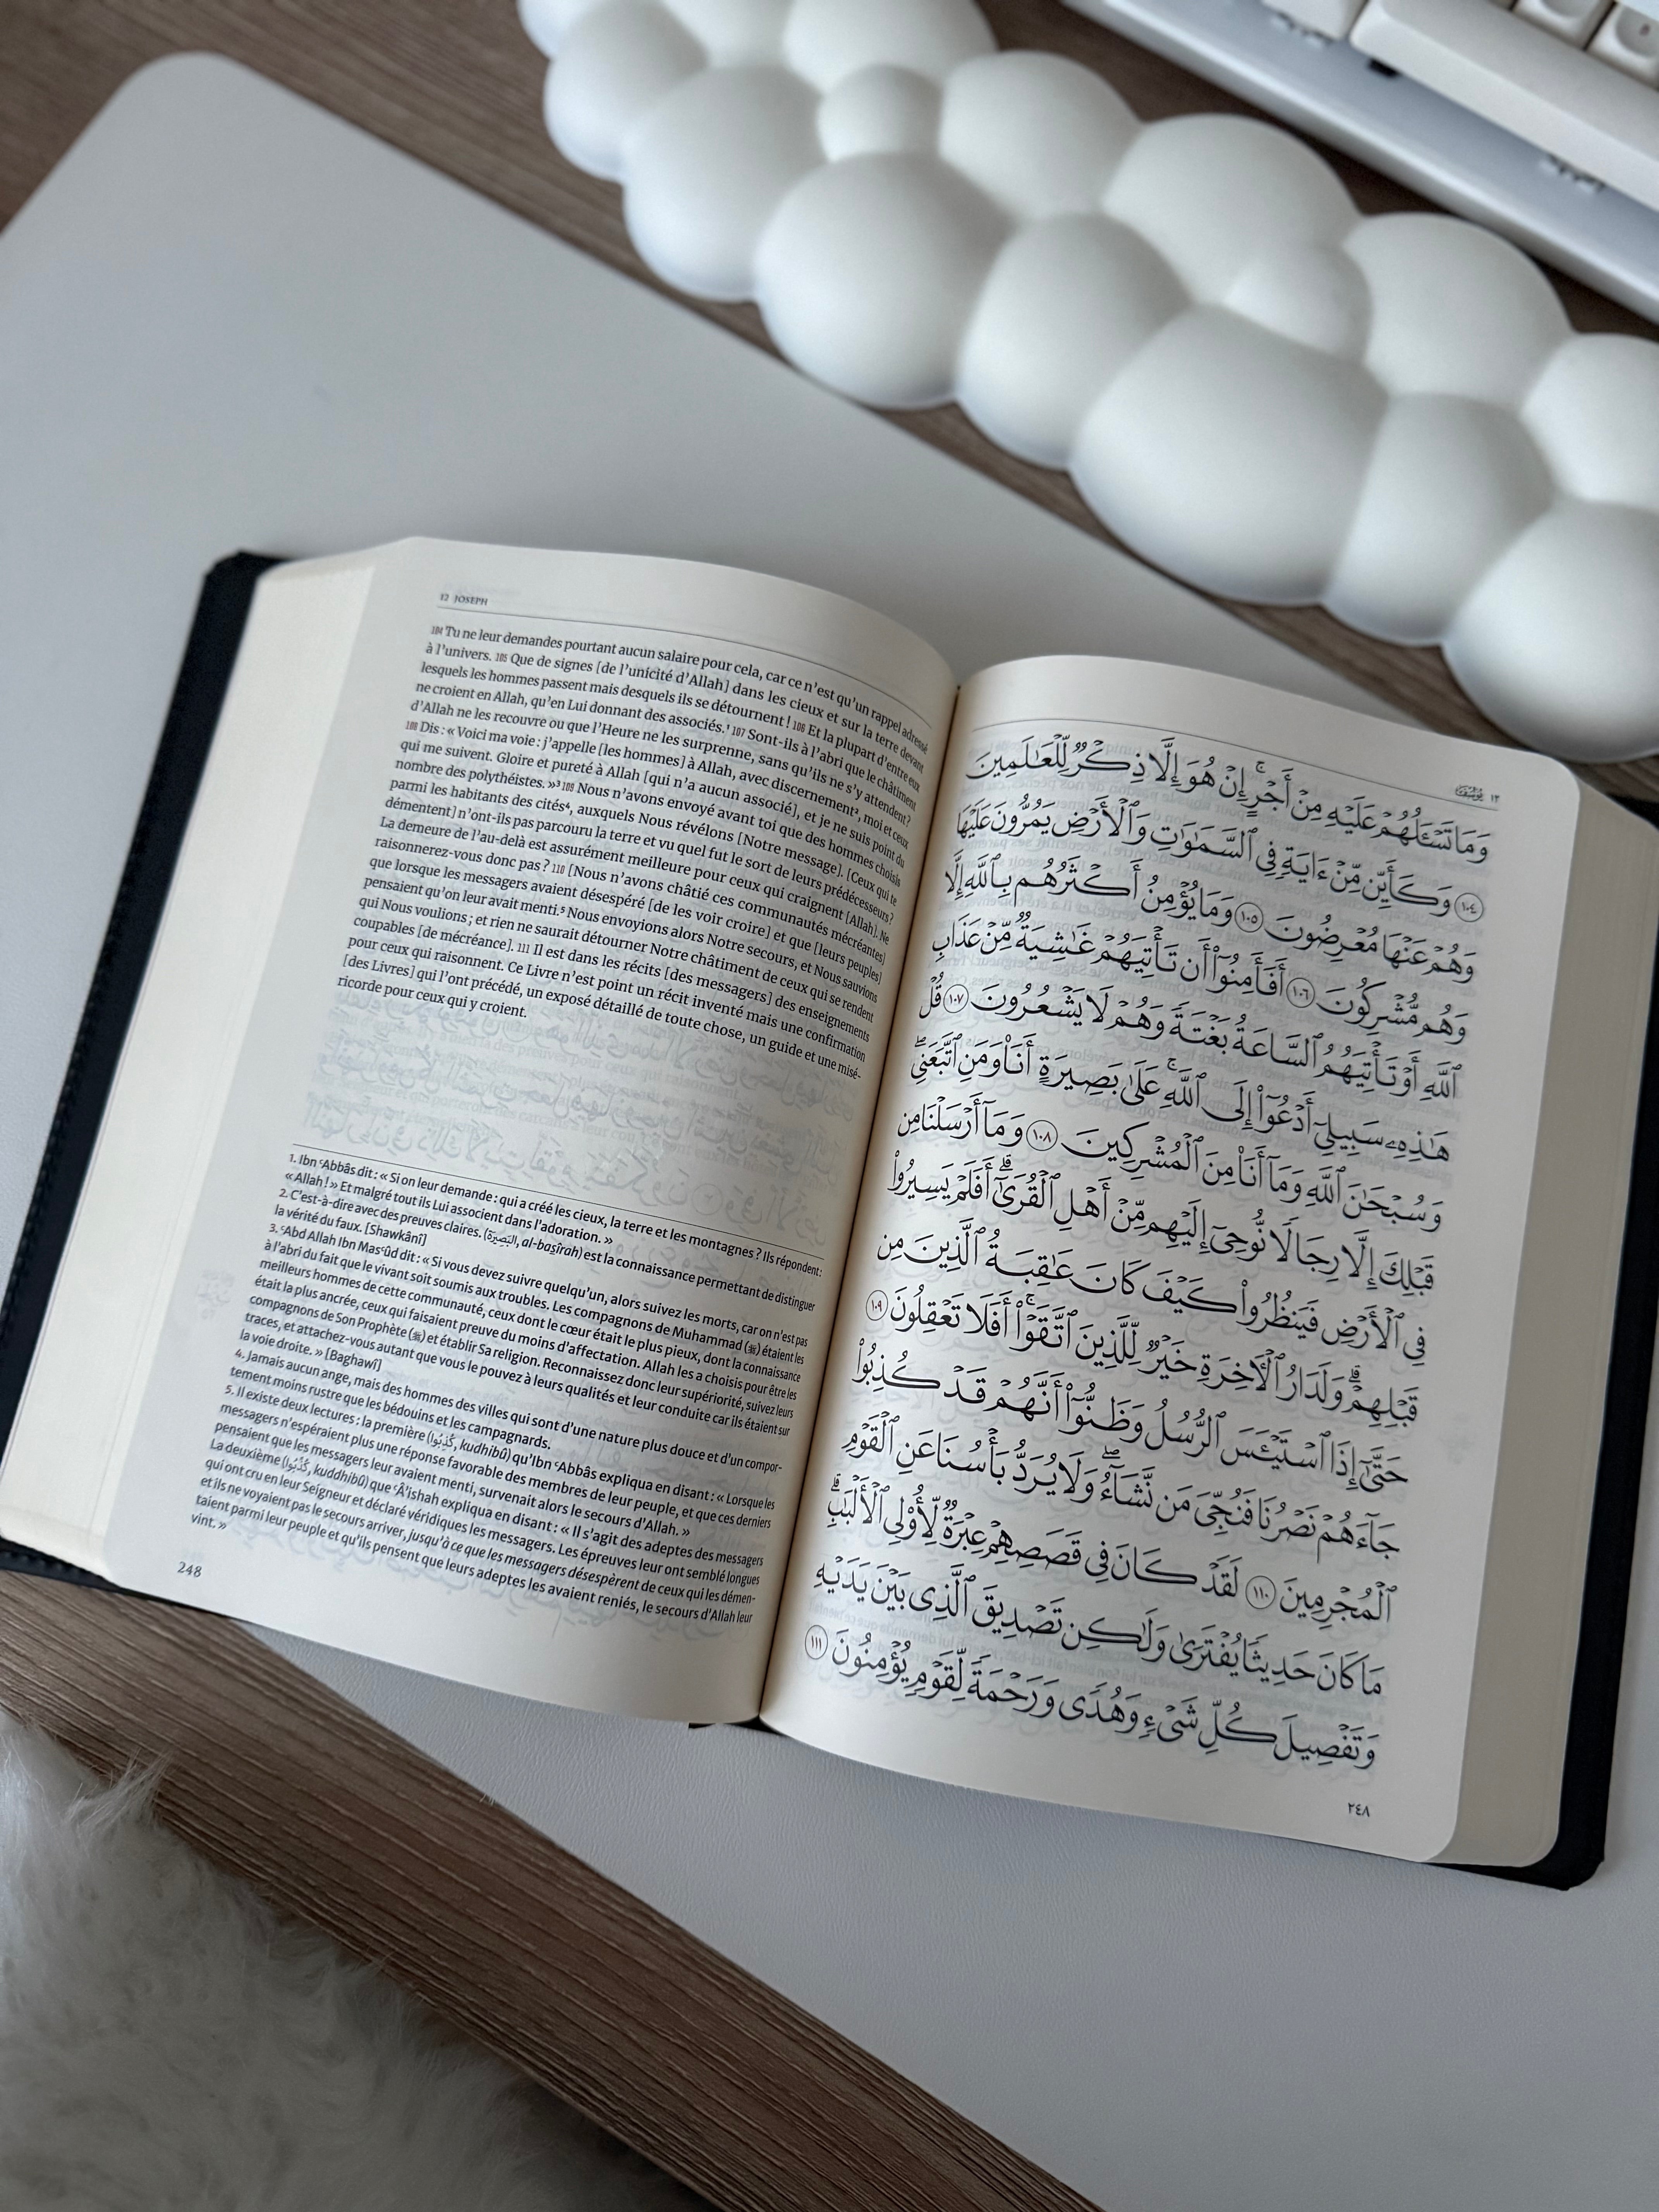 12 JOSEPH
104 Tu ne leur demandes pourtant aucun salaire pour cela, car ce n’est qu’un rappel adressé
à l’univers. 105 Que de signes [de l’unicité d’Allah] dans les cieux et sur la terre devant
lesquels les hommes passent mais desquels ils se détournent ! 106 Et la plupart d’entre eux
ne croient en Allah, qu’en Lui donnant des associés.¹ 107 Sont-ils à l’abri que le châtiment
d’Allah ne les recouvre ou que l’Heure ne les surprenne, sans qu’ils ne s’y attendent ?
108 Dis : « Voici ma voie : j’appelle [les hommes] à Allah, avec discernement², moi et ceux
qui me suivent. Gloire et pureté à Allah [qui n’a aucun associé], et je ne suis point du
nombre des polythéistes. »³ 109 Nous n’avons envoyé avant toi que des hommes choisis
parmi les habitants des cités⁴, auxquels Nous révélons [Notre message]. [Ceux qui te
démentent] n’ont-ils pas parcouru la terre et vu quel fut le sort de leurs prédécesseurs ?
La demeure de l’au-delà est assurément meilleure pour ceux qui craignent [Allah]. Ne
raisonnerez-vous donc pas ? 110 [Nous n’avons châtié ces communautés mécréantes]
que lorsque les messagers avaient désespéré [de les voir croire] et que [leurs peuples]
pensaient qu’on leur avait menti.⁵ Nous envoyions alors Notre secours, et Nous sauvions
qui Nous voulions ; et rien ne saurait détourner Notre châtiment de ceux qui se rendent
coupables [de mécréance]. 111 Il est dans les récits [des messagers] des enseignements
pour ceux qui raisonnent. Ce Livre n’est point un récit inventé mais une confirmation
[des Livres] qui l’ont précédé, un exposé détaillé de toute chose, un guide et une misé-
ricorde pour ceux qui y croient.
1. Ibn ʿAbbâs dit : « Si on leur demande : qui a créé les cieux, la terre et les montagnes ? Ils répondent :
« Allah ! » Et malgré tout ils Lui associent dans l’adoration. »
2. C’est-à-dire avec des preuves claires. (البَصِيرَة, al-baṣîrah) est la connaissance permettant de distinguer
la vérité du faux. [Shawkânî]
3. ʿAbd Allah Ibn Masʿûd dit : « Si vous devez suivre quelqu’un, alors suivez les morts, car on n’est pas
à l’abri du fait que le vivant soit soumis aux troubles. Les compagnons de Muhammad (ﷺ) étaient les
meilleurs hommes de cette communauté, ceux dont le cœur était le plus pieux, dont la connaissance
était la plus ancrée, ceux qui faisaient preuve du moins d’affectation. Allah les a choisis pour être les
compagnons de Son Prophète (ﷺ) et établir Sa religion. Reconnaissez donc leur supériorité, suivez leurs
traces, et attachez-vous autant que vous le pouvez à leurs qualités et leur conduite car ils étaient sur
la voie droite. » [Baghawî]
4. Jamais aucun ange, mais des hommes des villes qui sont d’une nature plus douce et d’un compor-
tement moins rustre que les bédouins et les campagnards.
5. Il existe deux lectures : la première (كُذِبُوا, kudhibû) qu’Ibn ʿAbbâs expliqua en disant : « Lorsque les
messagers n’espéraient plus une réponse favorable des membres de leur peuple, et que ces derniers
pensaient que les messagers leur avaient menti, survenait alors le secours d’Allah. »
La deuxième (كُذِّبُوا, kuddhibû) que ʿÂ’ishah expliqua en disant : « Il s’agit des adeptes des messagers
qui ont cru en leur Seigneur et déclaré véridiques les messagers. Les épreuves leur ont semblé longues
et ils ne voyaient pas le secours arriver, jusqu’à ce que les messagers désespèrent de ceux qui les démen-
taient parmi leur peuple et qu’ils pensent que leurs adeptes les avaient reniés, le secours d’Allah leur
vint. »
248
١٢ يوسف
وَمَا تَسْـَٔلُهُمْ عَلَيْهِ مِنْ أَجْرٍ ۚ إِنْ هُوَ إِلَّا ذِكْرٌ لِّلْعَٰلَمِينَ
١٠٤ وَكَأَيِّن مِّنْ ءَايَةٍ فِى ٱلسَّمَٰوَٰتِ وَٱلْأَرْضِ يَمُرُّونَ عَلَيْهَا
وَهُمْ عَنْهَا مُعْرِضُونَ ١٠٥ وَمَا يُؤْمِنُ أَكْثَرُهُم بِٱللَّهِ إِلَّا
وَهُم مُّشْرِكُونَ ١٠٦ أَفَأَمِنُوٓا۟ أَن تَأْتِيَهُمْ غَٰشِيَةٌ مِّنْ عَذَابِ
ٱللَّهِ أَوْ تَأْتِيَهُمُ ٱلسَّاعَةُ بَغْتَةً وَهُمْ لَا يَشْعُرُونَ ١٠٧ قُلْ
هَٰذِهِۦ سَبِيلِىٓ أَدْعُوٓا۟ إِلَى ٱللَّهِ ۚ عَلَىٰ بَصِيرَةٍ أَنَا۠ وَمَنِ ٱتَّبَعَنِى ۖ
وَسُبْحَٰنَ ٱللَّهِ وَمَآ أَنَا۠ مِنَ ٱلْمُشْرِكِينَ ١٠٨ وَمَآ أَرْسَلْنَا مِن
قَبْلِكَ إِلَّا رِجَالًا نُّوحِىٓ إِلَيْهِم مِّنْ أَهْلِ ٱلْقُرَىٰٓ ۗ أَفَلَمْ يَسِيرُوا۟
فِى ٱلْأَرْضِ فَيَنظُرُوا۟ كَيْفَ كَانَ عَٰقِبَةُ ٱلَّذِينَ مِن
قَبْلِهِمْ ۗ وَلَدَارُ ٱلْءَاخِرَةِ خَيْرٌ لِّلَّذِينَ ٱتَّقَوْا۟ ۚ أَفَلَا تَعْقِلُونَ ١٠٩
حَتَّىٰٓ إِذَا ٱسْتَيْـَٔسَ ٱلرُّسُلُ وَظَنُّوٓا۟ أَنَّهُمْ قَدْ كُذِبُوا۟
جَآءَهُمْ نَصْرُنَا فَنُجِّىَ مَن نَّشَآءُ ۖ وَلَا يُرَدُّ بَأْسُنَا عَنِ ٱلْقَوْمِ
ٱلْمُجْرِمِينَ ١١٠ لَقَدْ كَانَ فِى قَصَصِهِمْ عِبْرَةٌ لِّأُو۟لِى ٱلْأَلْبَٰبِ ۗ
مَا كَانَ حَدِيثًا يُفْتَرَىٰ وَلَٰكِن تَصْدِيقَ ٱلَّذِى بَيْنَ يَدَيْهِ
وَتَفْصِيلَ كُلِّ شَىْءٍ وَهُدًى وَرَحْمَةً لِّقَوْمٍ يُؤْمِنُونَ ١١١
٢٤٨